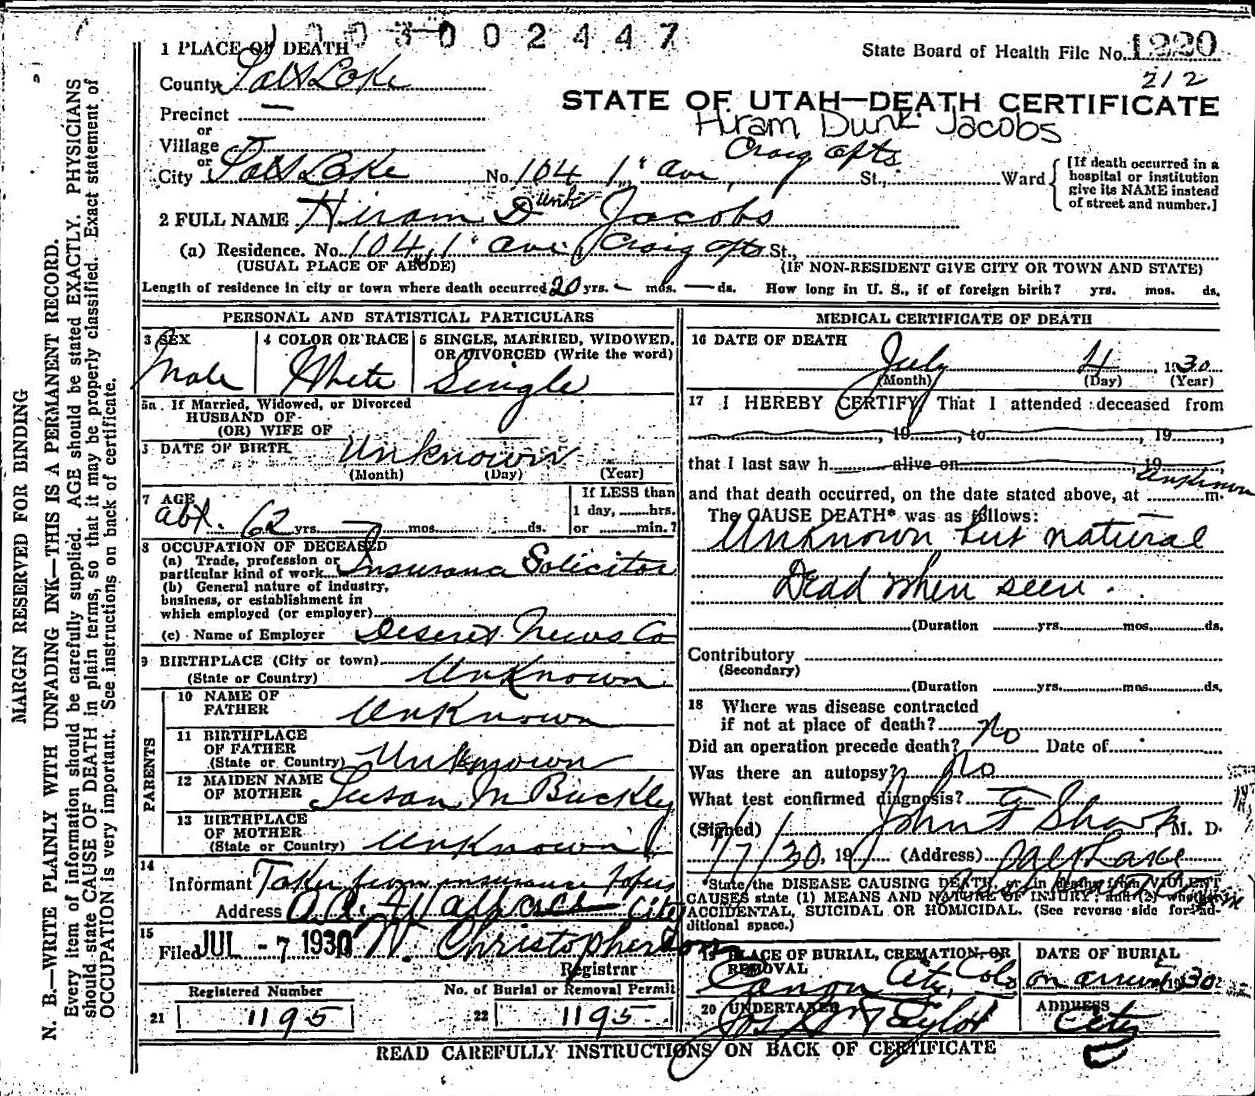 1003002447
State Board of Health File No. 1220
212
STATE OF UTAH—DEATH CERTIFICATE
Hiram Dunk Jacobs
1 PLACE OF DEATH
County Salt Lake
Precinct —
or
Village
or
City Salt Lake No. 104 1" ave, Craig apts St., Ward
[If death occurred in a
hospital or institution
give its NAME instead
of street and number.]
2 FULL NAME Hiram Dunk Jacobs
(a) Residence. No. 104, 1" ave. Craig apts St.,
(USUAL PLACE OF ABODE) (IF NON-RESIDENT GIVE CITY OR TOWN AND STATE)
Length of residence in city or town where death occurred 20 yrs. - mos. — ds. How long in U. S., if of foreign birth? yrs. mos. ds.
PERSONAL AND STATISTICAL PARTICULARS
3 SEX
Male
4 COLOR OR RACE
White
5 SINGLE, MARRIED, WIDOWED,
OR DIVORCED (Write the word)
Single
5a If Married, Widowed, or Divorced
HUSBAND OF
(OR) WIFE OF
DATE OF BIRTH Unknown
(Month) (Day) (Year)
7 AGE
abt. 62 yrs. — mos. ds.
If LESS than
1 day, hrs.
or min.?
8 OCCUPATION OF DECEASED
(a) Trade, profession or
particular kind of work Insurance Solicitor
(b) General nature of industry,
business, or establishment in
which employed (or employer)
(c) Name of Employer Deseret News Co
9 BIRTHPLACE (City or town)
(State or Country) Unknown
PARENTS
10 NAME OF
FATHER Unknown
11 BIRTHPLACE
OF FATHER
(State or Country) Unknown
12 MAIDEN NAME
OF MOTHER Susan M Buckley
13 BIRTHPLACE
OF MOTHER
(State or Country) Unknown
14
Informant Taken from insurance
Address City
15
Filed JUL - 7 1930 W. Christopherson
Registrar
Registered Number
21 1195
No. of Burial or Removal Permit
22 1195
MEDICAL CERTIFICATE OF DEATH
16 DATE OF DEATH
July 4, 1930
(Month) (Day) (Year)
17 I HEREBY CERTIFY, That I attended deceased from
, 19 , to , 19 ,
that I last saw h alive on , 19
and that death occurred, on the date stated above, at Unknown m.
The CAUSE DEATH* was as follows:
Unknown but natural
Dead when seen.
(Duration yrs. mos. ds.
Contributory
(Secondary)
(Duration yrs. mos. ds.
18 Where was disease contracted
if not at place of death?
Did an operation precede death? No Date of
Was there an autopsy? No
What test confirmed diagnosis?
(Signed) John F Sharp, M. D.
7/7/30, 19 (Address) Salt Lake
*State the DISEASE CAUSING DEATH, or in deaths from VIOLENT
CAUSES state (1) MEANS AND NATURE OF INJURY; and (2) whether
ACCIDENTAL, SUICIDAL OR HOMICIDAL. (See reverse side for ad-
ditional space.)
19 PLACE OF BURIAL, CREMATION, OR
REMOVAL
Canon City, Colo
DATE OF BURIAL
on arrival 1930
20 UNDERTAKER
Taylor
ADDRESS
City
READ CAREFULLY INSTRUCTIONS ON BACK OF CERTIFICATE
MARGIN RESERVED FOR BINDING
N. B.—WRITE PLAINLY WITH UNFADING INK—THIS IS A PERMANENT RECORD.
Every item of information should be carefully supplied. AGE should be stated EXACTLY. PHYSICIANS
should state CAUSE OF DEATH in plain terms, so that it may be properly classified. Exact statement of
OCCUPATION is very important. See instructions on back of certificate.